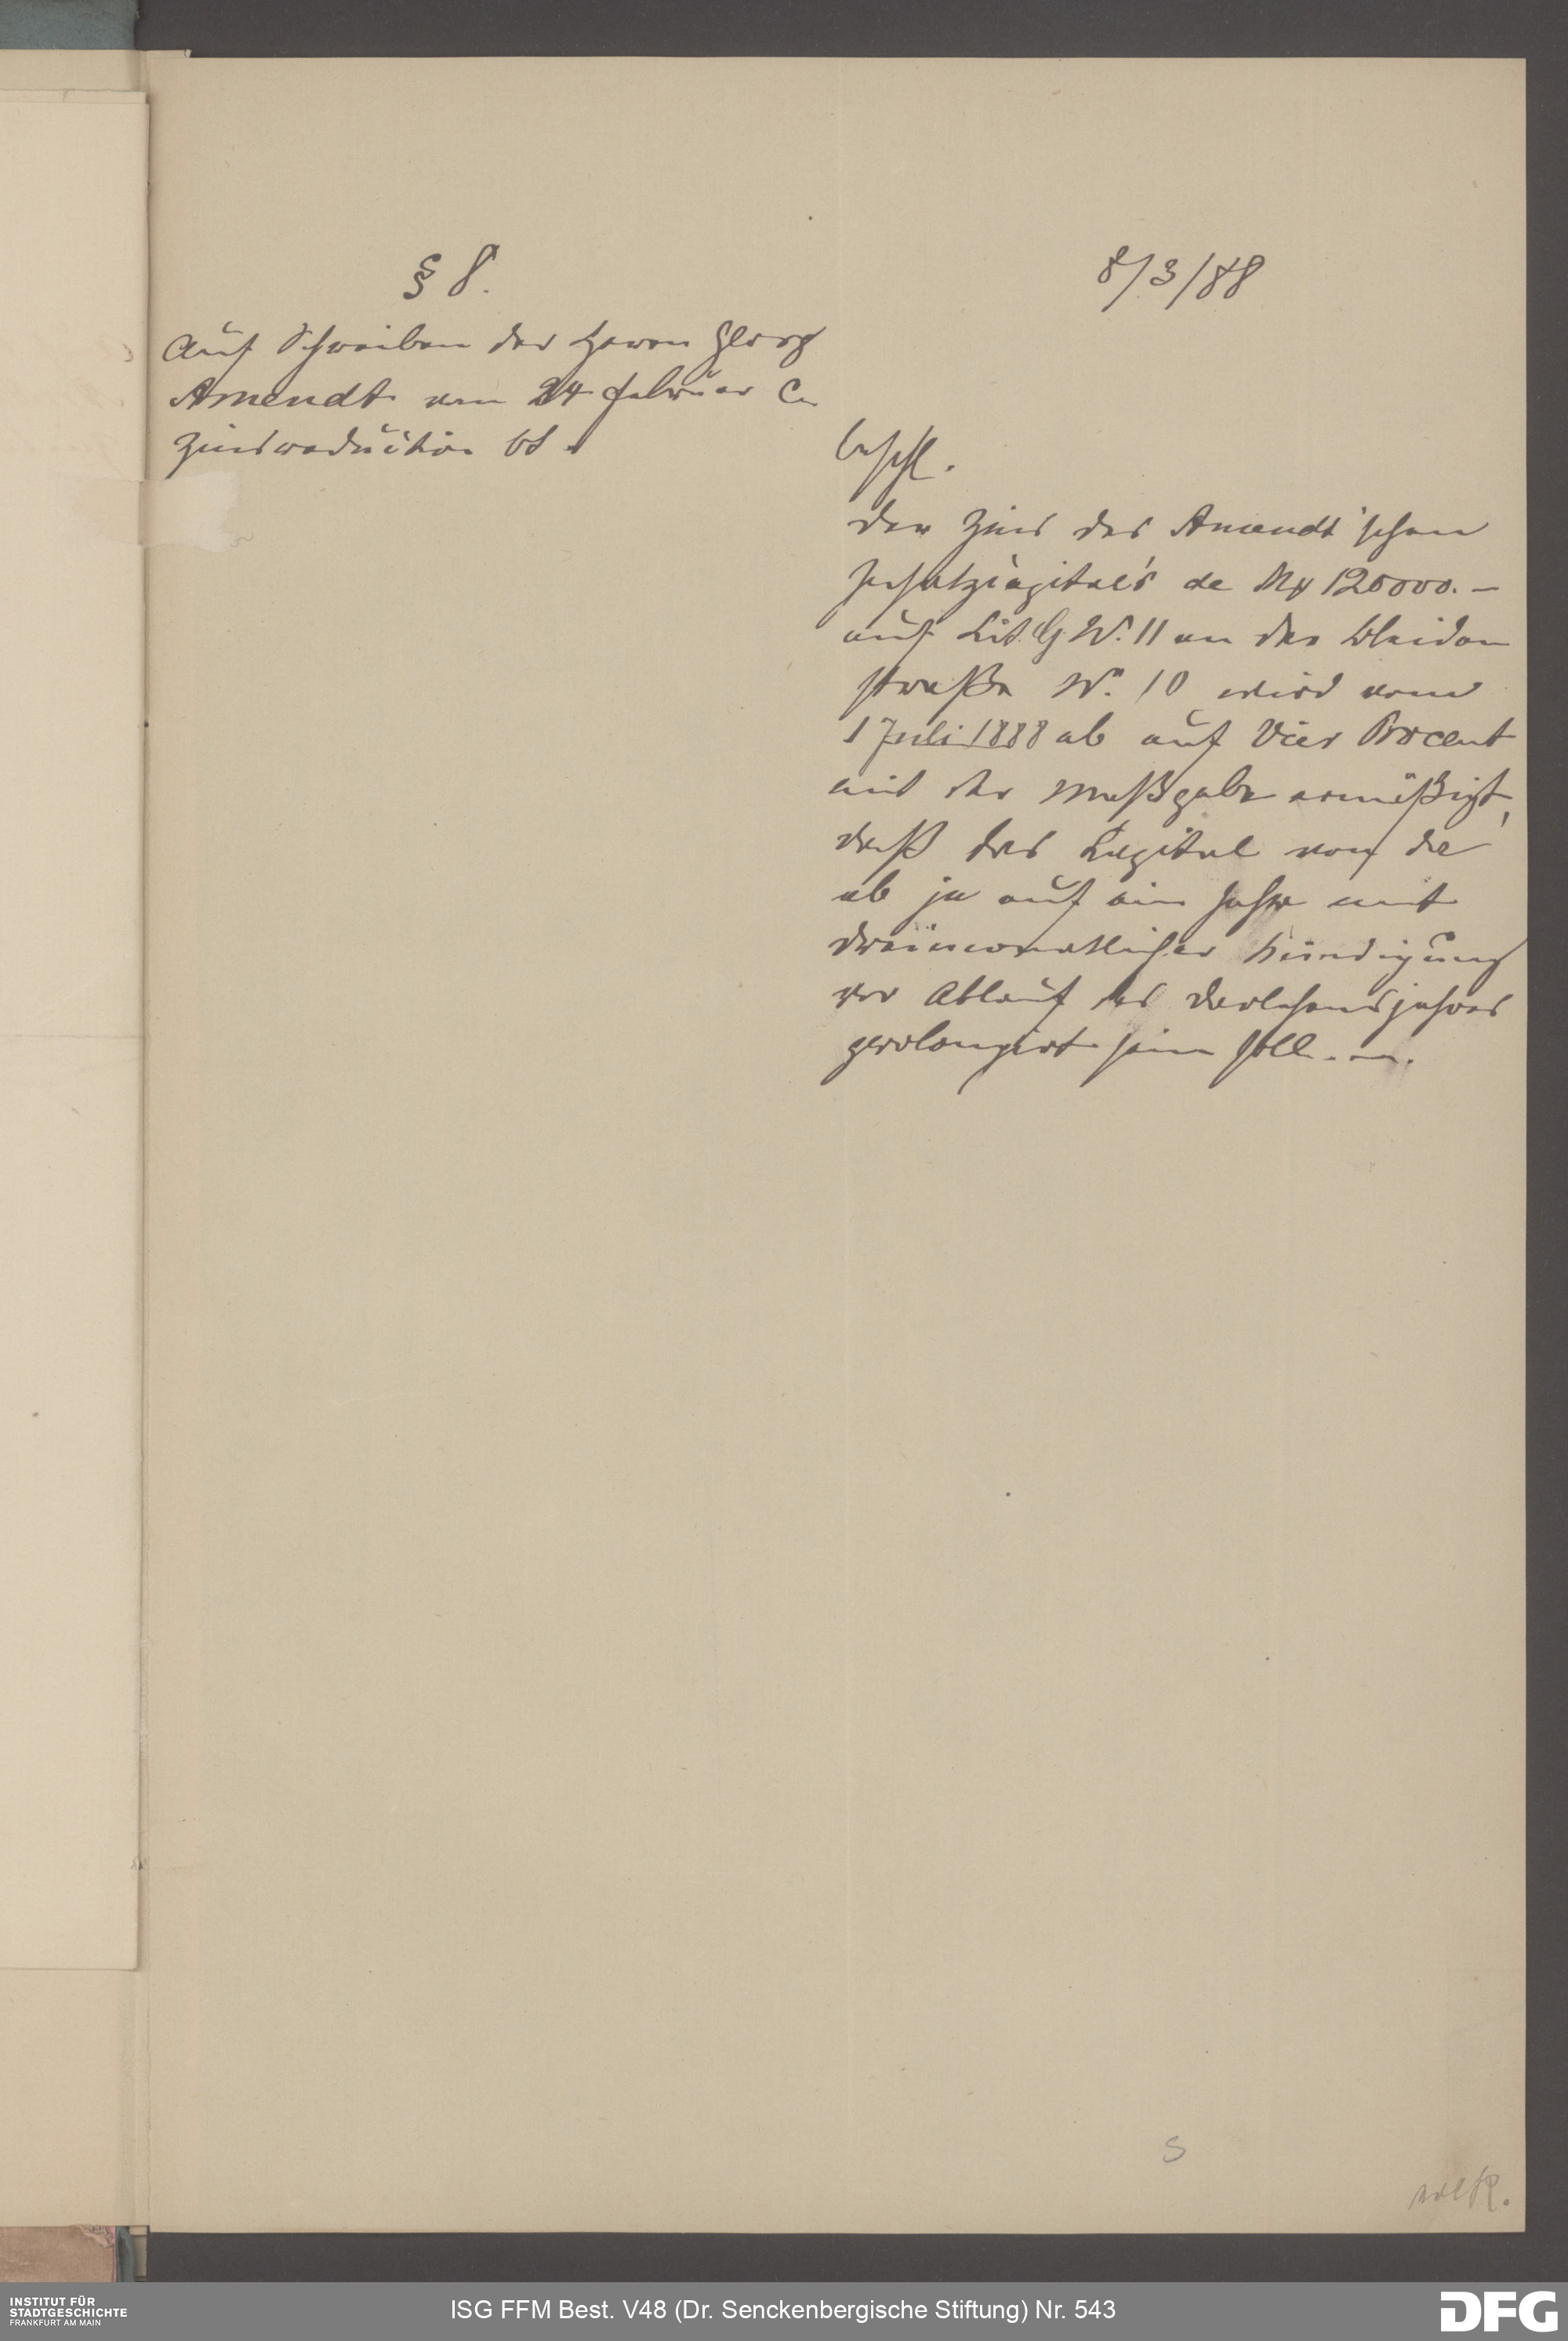 § 8.
Auf Schreiben des Herrn Georg
Amendt vom 24 Februar c.
Zinsreduction bt.
8/3/88
beschl.
der Zins des Amendt'schen
Insatzcapital's de Mk 120000.—
auf Lit. G N. 11 an der Weiden
straße No. 10 wird vom
1 Juli 1888 ab auf Vier Procent
mit der Maßgabe ermäßigt,
daß das Kapital von da
ab je auf ein Jahr mit
dreimonatlicher Kündigung
vor Ablauf des Darlehensjahres
prolongirt sein soll.
S
INSTITUT FÜR
STADTGESCHICHTE
FRANKFURT AM MAIN
ISG FFM Best. V48 (Dr. Senckenbergische Stiftung) Nr. 543
DFG